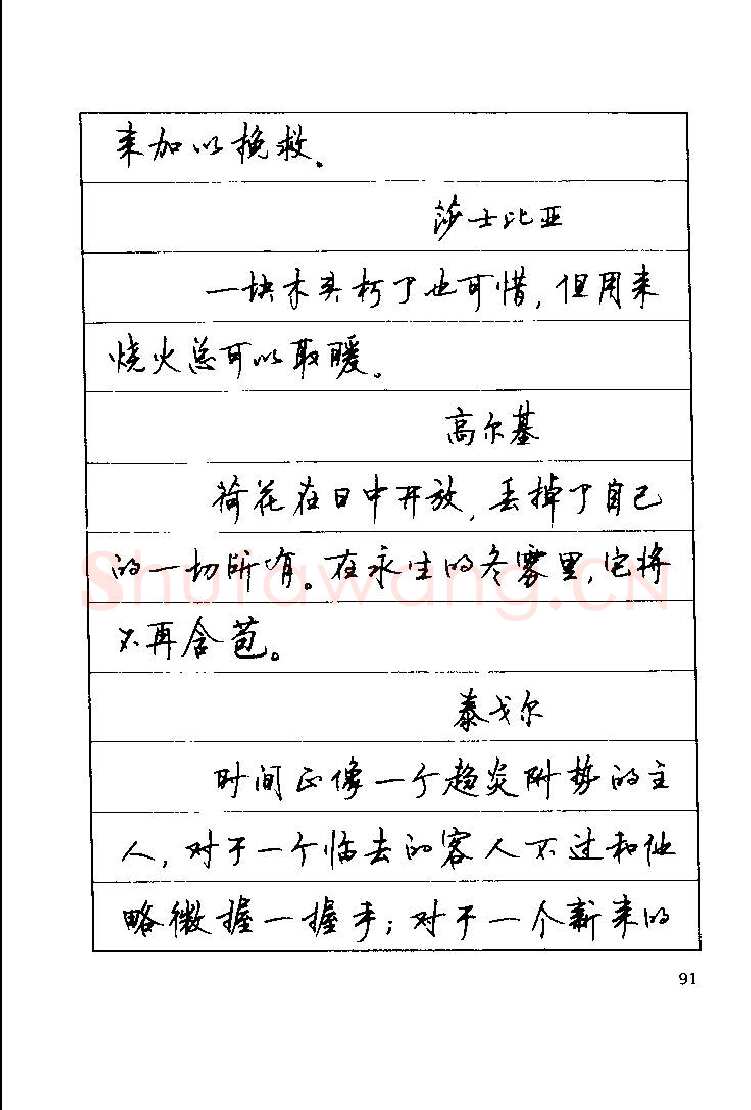 来加以挽救。
莎士比亚
一块木头朽了也可惜，但用来
烧火总可以取暖。
高尔基
荷花在日中开放，丢掉了自己
的一切所有。在永生的冬雾里，它将
不再含苞。
泰戈尔
时间正像一个趋炎附势的主
人，对于一个临去的客人不过和他
略微握一握手；对于一个新来的
Shufawang.CN
91